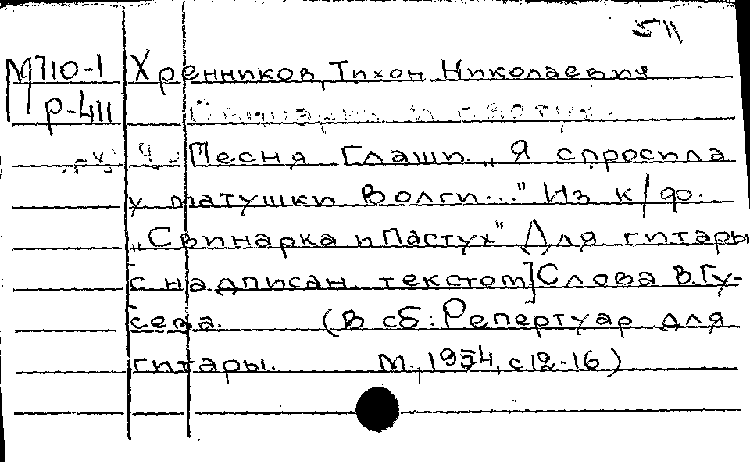 511
М710-1 Хренников, Тихон Николаевич
Р-411 Свинарка и пастух.
Песня Глаши „Я спросила
у матушки Волги..." Из к/ф.
„Свинарка и Пастух" Для гитары
с надписан. текстом] Слова В. Гу-
сева. (В сб: Репертуар для
гитары. М., 1954, с 12-16)